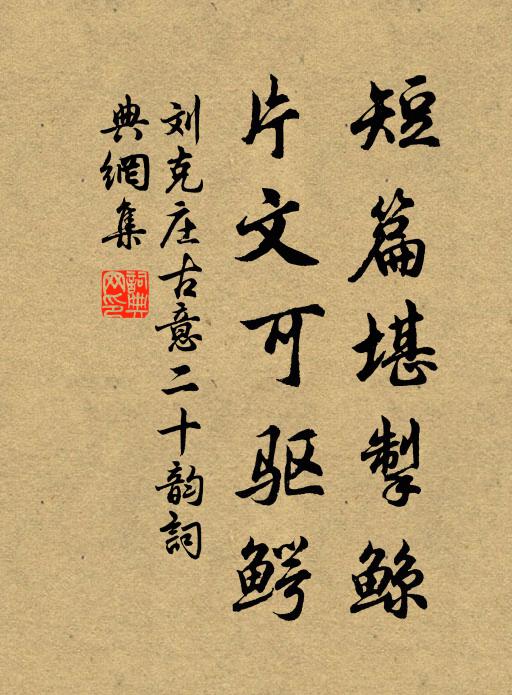 短篇堪掣鲸
片文可驱鳄
刘克庄古意二十韵詞
典網集
詞典
网印